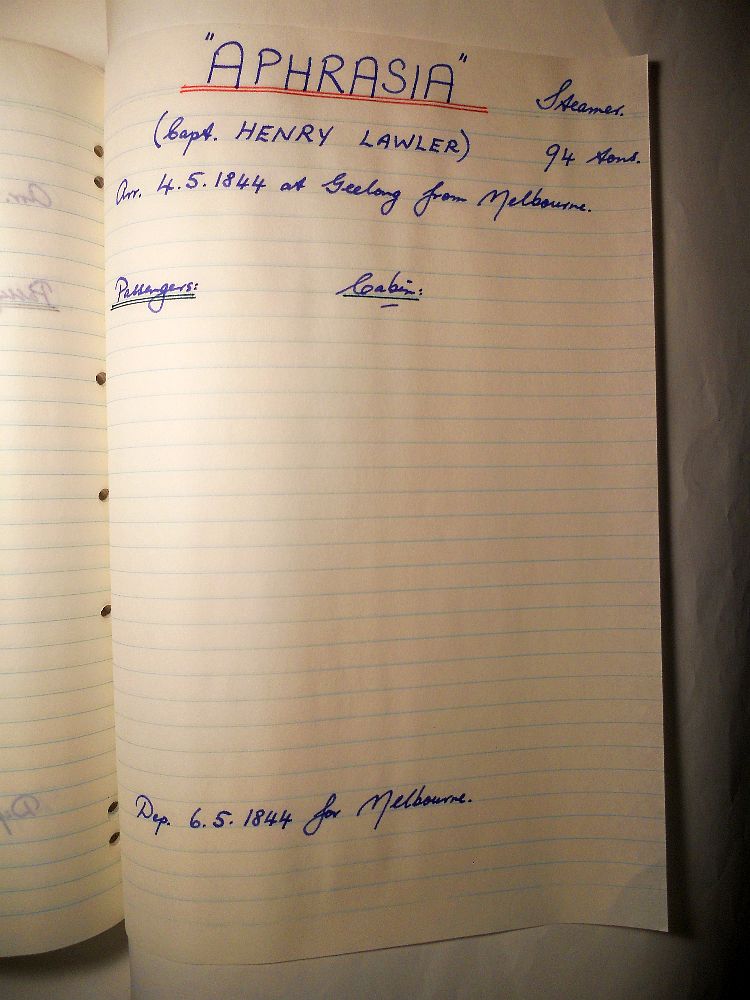 "APHRASIA"
Steamer.
(Capt. HENRY LAWLER)
94 tons.
Arr. 4.5.1844 at Geelong from Melbourne.
Passengers: Cabin:
Dep. 6.5.1844 for Melbourne.